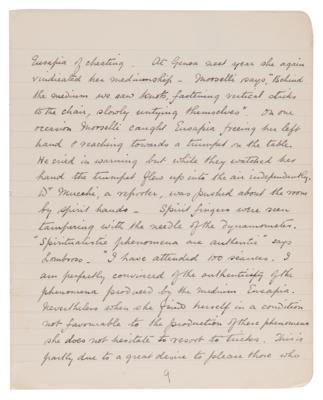 Eusapia of cheating. At Genoa next year she again
vindicated her mediumship - Morselli says, "Behind
the medium we saw knots, fastening vertical sticks
to the chair, slowly untying themselves". On one
occasion Morselli caught Eusapia freeing her left
hand & reaching towards a trumpet on the table.
He cried in warning but while they watched her
hand the trumpet flew up into the air independently.
Dr Mucchi, a reporter, was pushed about the room
by spirit hands - Spirit fingers were seen
tampering with the needle of the Dynamometer.
"Spiritualistic phenomena are authentic" says
Lombroso. - I have attended 100 seances. I
am perfectly convinced of the authenticity of the
phenomena produced by the medium Eusapia.
Nevertheless when she finds herself in a condition
not favourable to the production of these phenomena
she does not hesitate to resort to tricks. This is
partly due to a great desire to please those who
9